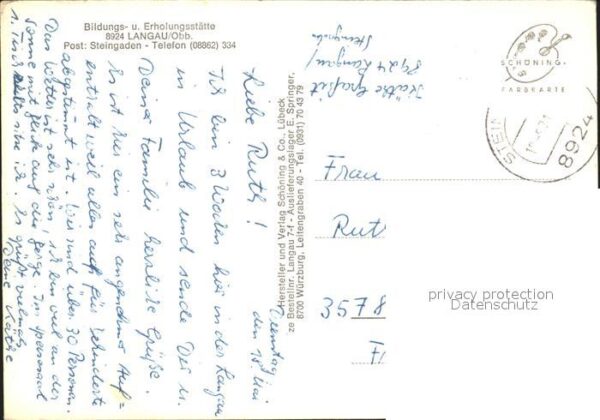 Bildungs- u. Erholungsstätte
8924 LANGAU/Obb.
Post: Steingaden - Telefon (08862) 334
Dienstag,
den 18. Mai
Liebe Ruth!
Ich bin 3 Wochen hier in der Langau
in Urlaub und sende Dir u.
Deiner Familie herzliche Grüße.
Es ist hier ein sehr angenehmer Auf=
enthalt weil alles auf für Behinderte
abgestimmt ist. Wir sind über 30 Personen.
Das Wetter ist sehr schön, ich bin viel an der
Sonne mit Blick auf die Berge. Im Speisesaal
1. Tisch sitze ich. Es grüßt vielmals
Deine Käthe
Hersteller und Verlag Schöning & Co., Lübeck
Bestellnr. Langau 7+ - Auslieferungslager E. Springer,
8700 Würzburg, Leitengraben 40 - Tel. (0931) 70 43 79
Käthe
8924 Langau/
Steingaden
SCHÖNING
FARBKARTE
STEIN
8924
Frau
Rut
3578
privacy protection
Datenschutz